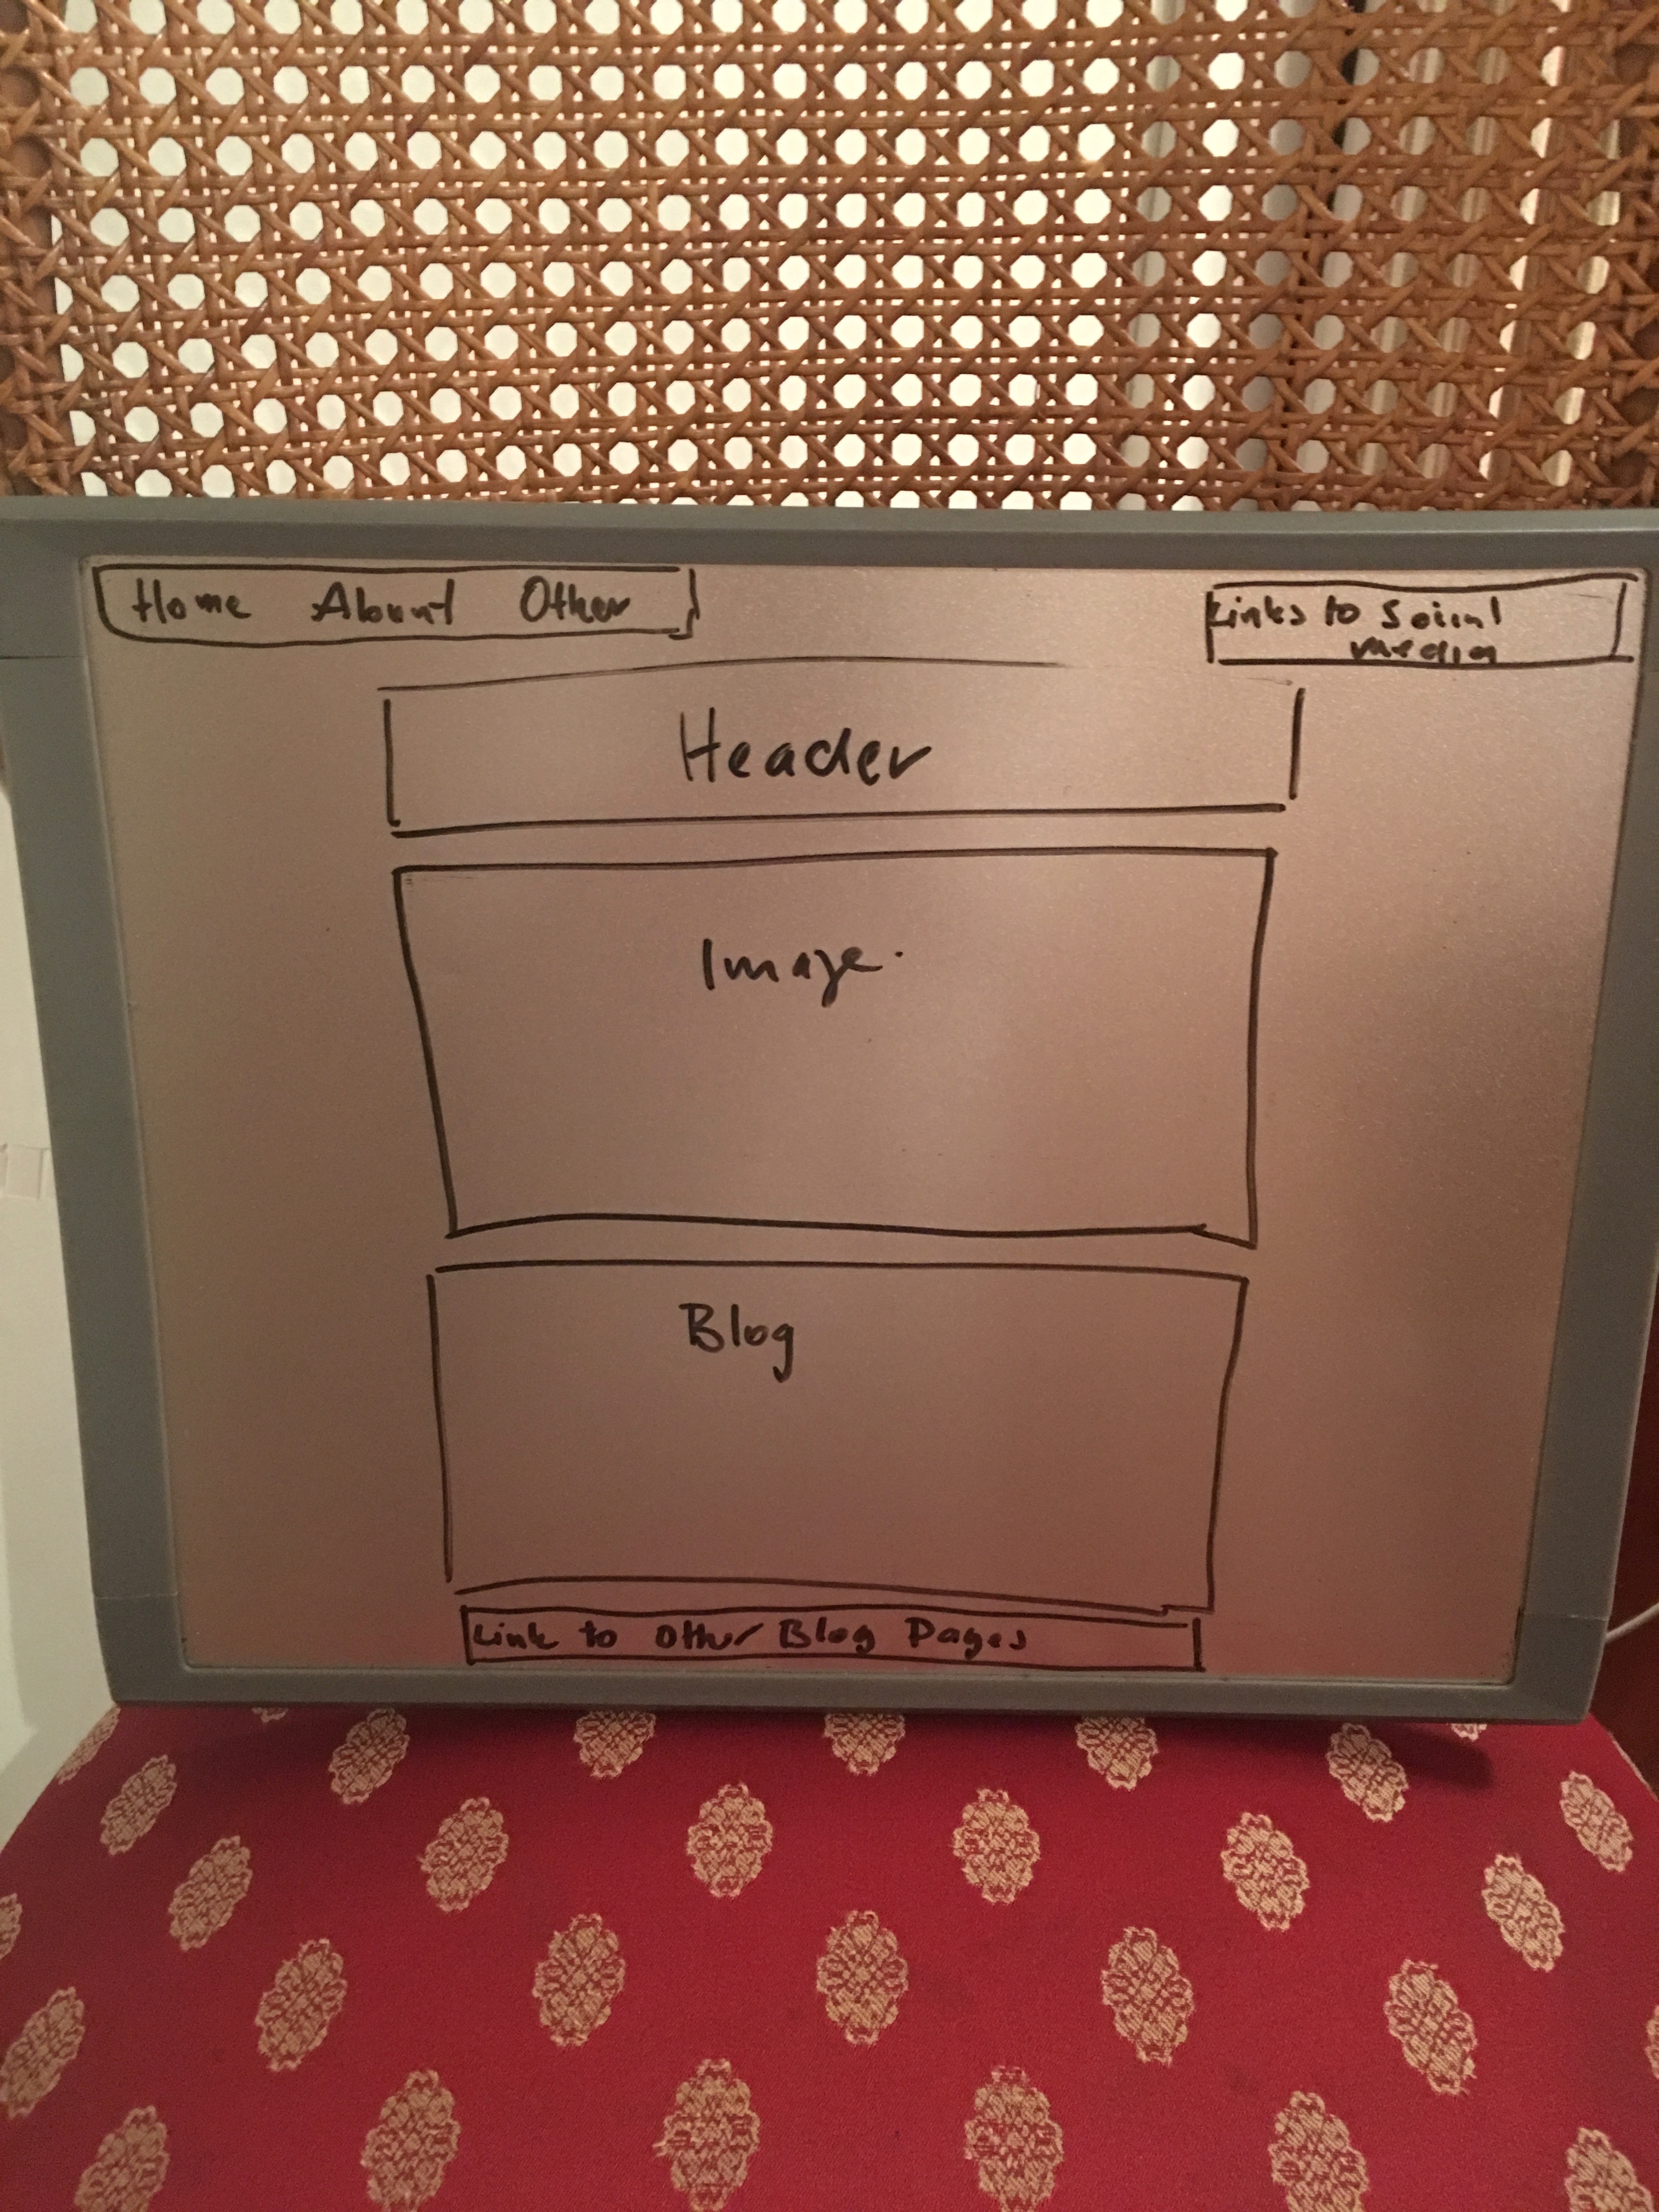 Home About Other
Links to Social
media
Header
Image
Blog
Link to Other Blog Pages